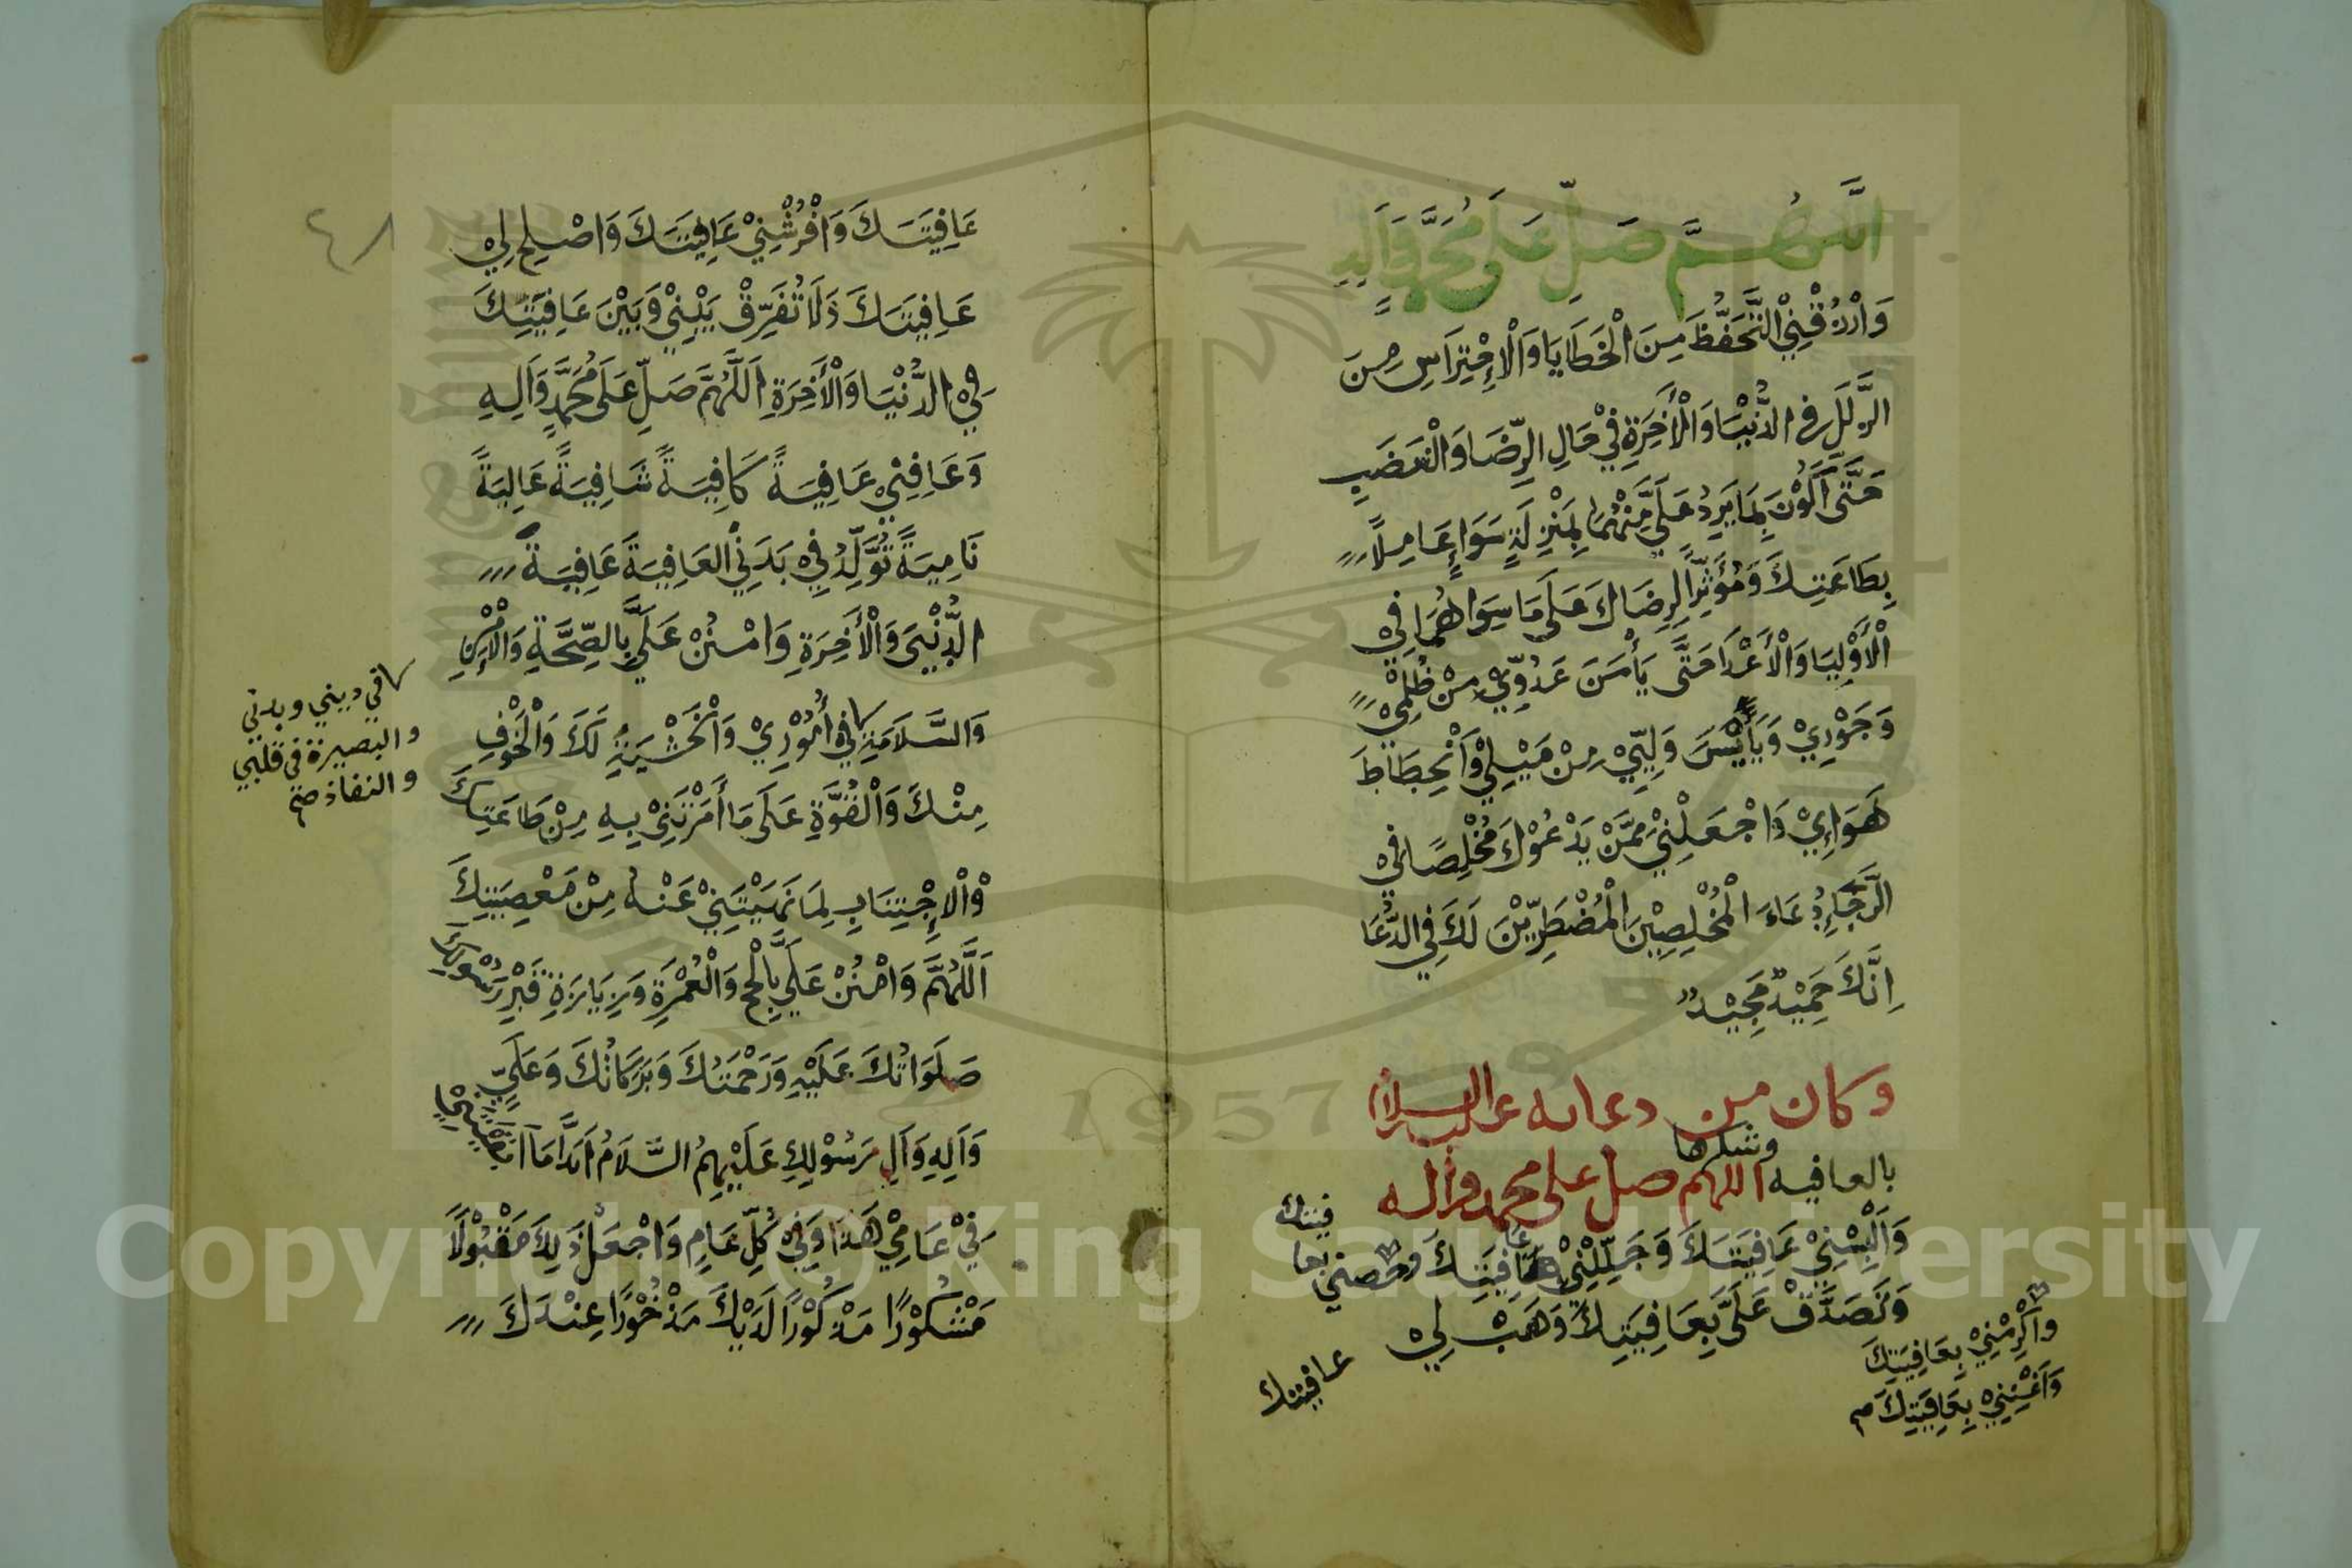 اللهم صل على محمد وآله
وَارْزُقْنِي التَّحَفُّظَ مِنَ الْخَطَايَا وَالْاِحْتِرَاسِ مِنَ
الزَّلَلِ فِي الدُّنْيَا وَالْأَخِرَةِ فِيْ حَالِ الرِّضَا وَالْغَضَبِ
حَتَّى أَكُوْنَ بِمَا يَرِدُ عَلَيَّ مِنْهُمَا بِمَنْزِلَةٍ سَوَاءٍ عَامِلًا
بِطَاعَتِكَ وَمُؤْثِرًا لِرِضَاكَ عَلَى مَا سِوَاهُمَا فِيْ
الْأَوْلِيَا وَالْأَعْدَا حَتَّى يَأْمَنَ عَدُوِّيْ مِنْ ظُلْمِيْ
وَجَوْرِيْ وَيَأْيَسَ وَلِيِّيْ مِنْ مَيْلِيْ وَاَنْحِطَاطَ
هَوَايِيْ وَاجْعَلْنِيْ مِمَّنْ يَدْعُوْكَ مُخْلِصًا فِيْ
الرَّجَاءِ دُعَاءَ الْمُخْلِصِيْنَ الْمُضْطَرِّيْنَ لَكَ فِي الدُّعَا
اِنَّكَ حَمِيْدٌ مَجِيْدٌ
وكان من دعائه عليه السلام
بالعافيه وشكرها اللهم صل على محمد وآله
وَاَلْبِسْنِيْ عَافِيَتَكَ وَجَلِّلْنِيْ عَافِيَتَكَ وحصني بعا
فيتك
وَتَصَدَّقْ عَلَيَّ بِعَافِيَتِكَ وَهَبْ لِيْ
عافيتك
وَاَكْرِمْنِيْ بِعَافِيَتِكَ
وَاَغْنِنِيْ بِعَافِيَتِكَ
٤٨
عَافِيَتَكَ وَافْرُشْنِيْ عَافِيَتَكَ وَاصْلِحْ لِيْ
عَافِيَتَكَ وَلَا تُفَرِّقْ بَيْنِيْ وَبَيْنَ عَافِيَتِكَ
فِي الدُّنْيَا وَالْأَخِرَةِ اَللَّهُمَّ صَلِّ عَلَى مُحَمَّدٍ وَآلِهِ
وَعَافِنِيْ عَافِيَةً كَافِيَةً شَافِيَةً عَالِيَةً
نَامِيَةً تُوَلِّدُ فِيْ بَدَنِي العَافِيَةَ عَافِيَةً
الدُّنْيَى وَالْأَخِرَةِ وَامْنُنْ عَلَيَّ بِالصِّحَّةِ وَالْأَمْنِ
وَالسَّلَامَةِ فِيْ أُمُوْرِيْ وَالْخَشْيَةِ لَكَ وَالْخَوْفِ
في ديني وبدني
والبصيرة في قلبي
والنفاذ صح
مِنْكَ وَالْقُوَّةِ عَلَى مَا أَمَرْتَنِيْ بِهِ مِنْ طَاعَتِكَ
وْالاِجْتِنَابِ لِمَا نَهَيْتَنِيْ عَنْهُ مِنْ مَعْصِيَتِكَ
اَللَّهُمَّ وَامْنُنْ عَلَيَّ بِالْحَجِّ وَالْعُمْرَةِ وَزِيَارَةِ قَبْرِ رَسُوْلِكَ
صَلَوَاتُكَ عَلَيْهِ وَرَحْمَتُكَ وَبَرَكَاتُكَ وَعَلَيَّ
وَآلِهِ وَآلِ رَسُوْلِكَ عَلَيْهِمُ السَّلَامُ اَبَدًا مَا اَبْقَيْتَنِيْ
فِيْ عَامِيْ هَذَا وَفِيْ كُلِّ عَامٍ وَاجْعَلْ ذَلِكَ مَقْبُوْلًا
مَشْكُوْرًا مَذْكُوْرًا لَدَيْكَ مَذْخُوْرًا عِنْدَكَ
Copyright © King Saud University
1957